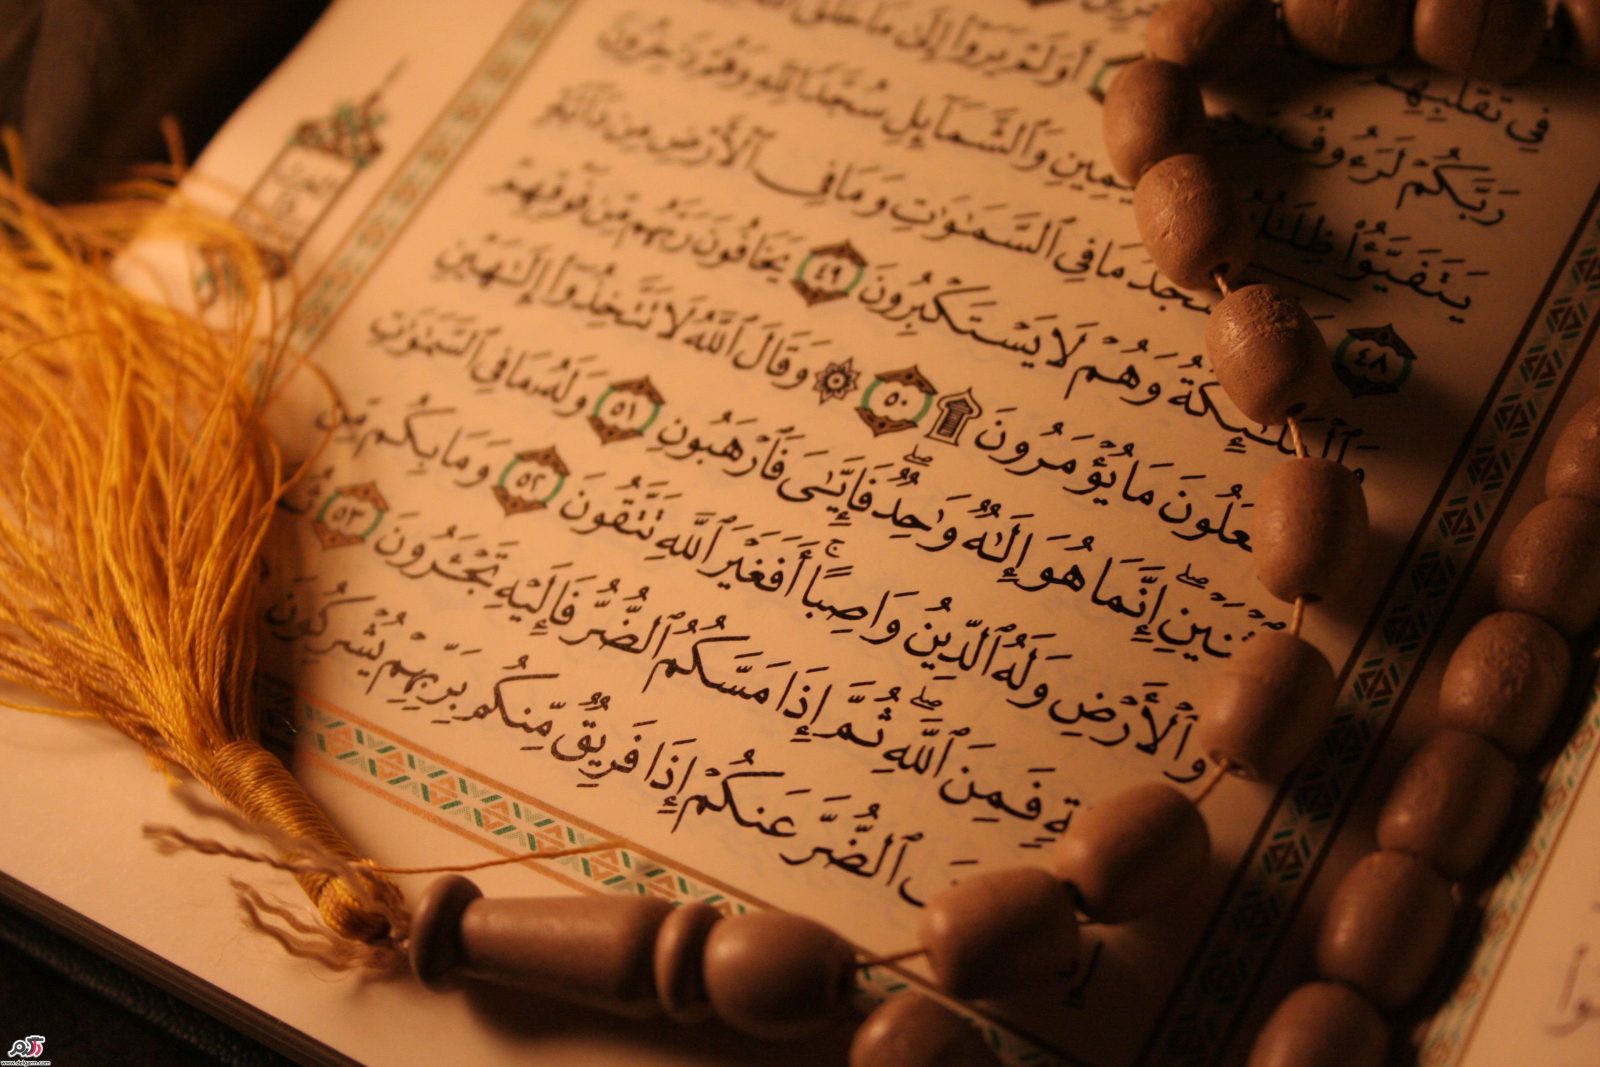 فِي تَقَلُّبِهِمْ
رَبَّكُمْ لَرَءُوفٌ أَوَلَمْ يَرَوْا۟ إِلَىٰ مَا خَلَقَ
يَتَفَيَّؤُا۟ ظِلَٰلُهُۥ وَٱلشَّمَآئِلِ سُجَّدًا لِّلَّهِ وَهُمْ دَٰخِرُونَ
٤٨ مَا فِي ٱلسَّمَٰوَٰتِ وَمَا فِي ٱلْأَرْضِ مِن دَآبَّةٍ
وَٱلْمَلَٰٓئِكَةُ وَهُمْ لَا يَسْتَكْبِرُونَ ٤٩ يَخَافُونَ رَبَّهُم مِّن فَوْقِهِمْ
مَا يُؤْمَرُونَ ۩ ٥٠ ۞ وَقَالَ ٱللَّهُ لَا تَتَّخِذُوٓا۟ إِلَٰهَيْنِ
ٱثْنَيْنِ ۖ إِنَّمَا هُوَ إِلَٰهٌ وَٰحِدٌ ۖ فَإِيَّٰيَ فَٱرْهَبُونِ ٥١ وَلَهُۥ مَا فِي ٱلسَّمَٰوَٰتِ
وَٱلْأَرْضِ وَلَهُ ٱلدِّينُ وَاصِبًا ۚ أَفَغَيْرَ ٱللَّهِ تَتَّقُونَ ٥٢ وَمَا بِكُم مِّن
فَمِنَ ٱللَّهِ ۖ ثُمَّ إِذَا مَسَّكُمُ ٱلضُّرُّ فَإِلَيْهِ تَجْـَٔرُونَ ٥٣
ٱلضُّرَّ عَنكُمْ إِذَا فَرِيقٌ مِّنكُم بِرَبِّهِمْ يُشْرِكُونَ